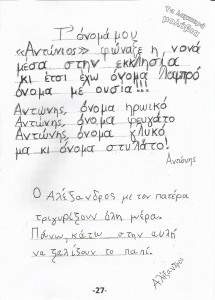 Τα Δημοτικά
μολύβια
Τ' όνομά μου
«Αντώνιος» φώναξε η νονά
μέσα στην εκκλησία
κι έτσι έχω όνομα λαμπρό
όνομα με ουσία!!!
Αντώνης, όνομα ηρωικό
Αντώνης, όνομα φευγάτο
Αντώνης, όνομα γλυκό
μα κι όνομα στυλάτο!
Αντώνης
Ο Αλέξανδρος με τον πατέρα
τριγυρίζουν όλη μέρα.
Πάνω, κάτω στην αυλή
να ζαλίζουν το παπί.
Αλέξανδρος
-27-